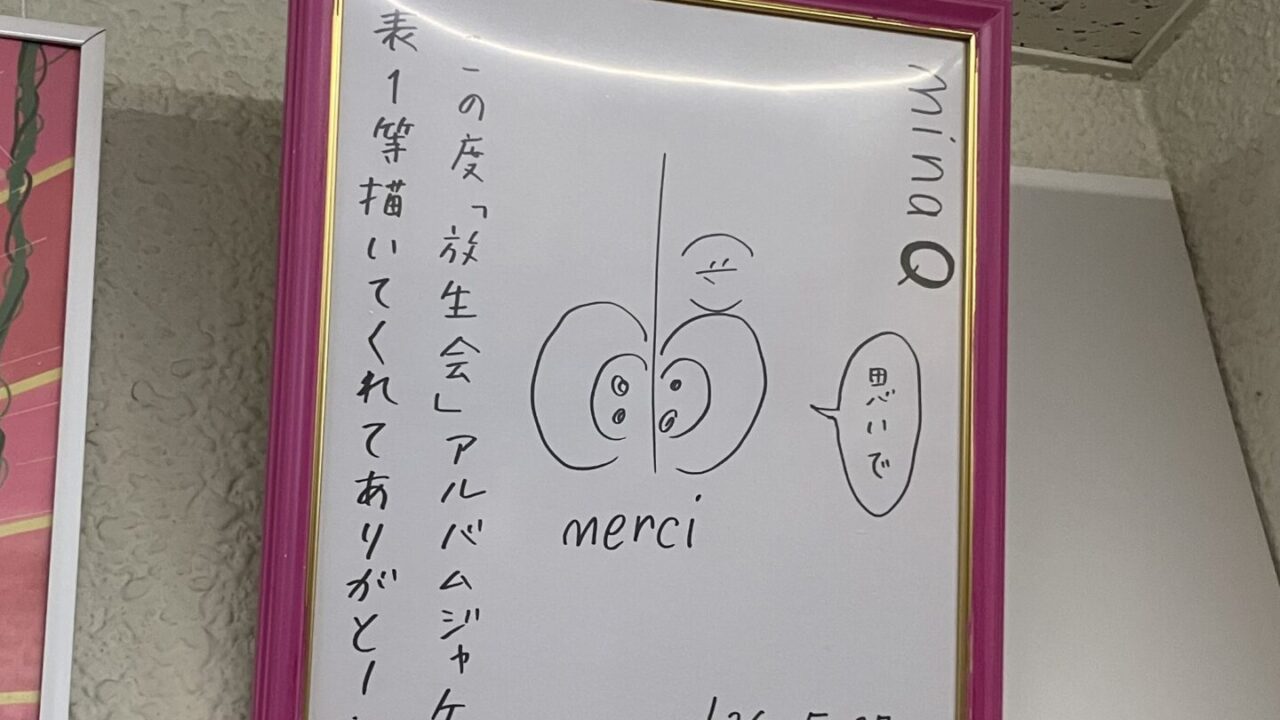 minaQ
思いで
merci
この度「放生会」アルバムジャケ
表1等描いてくれてありがとー